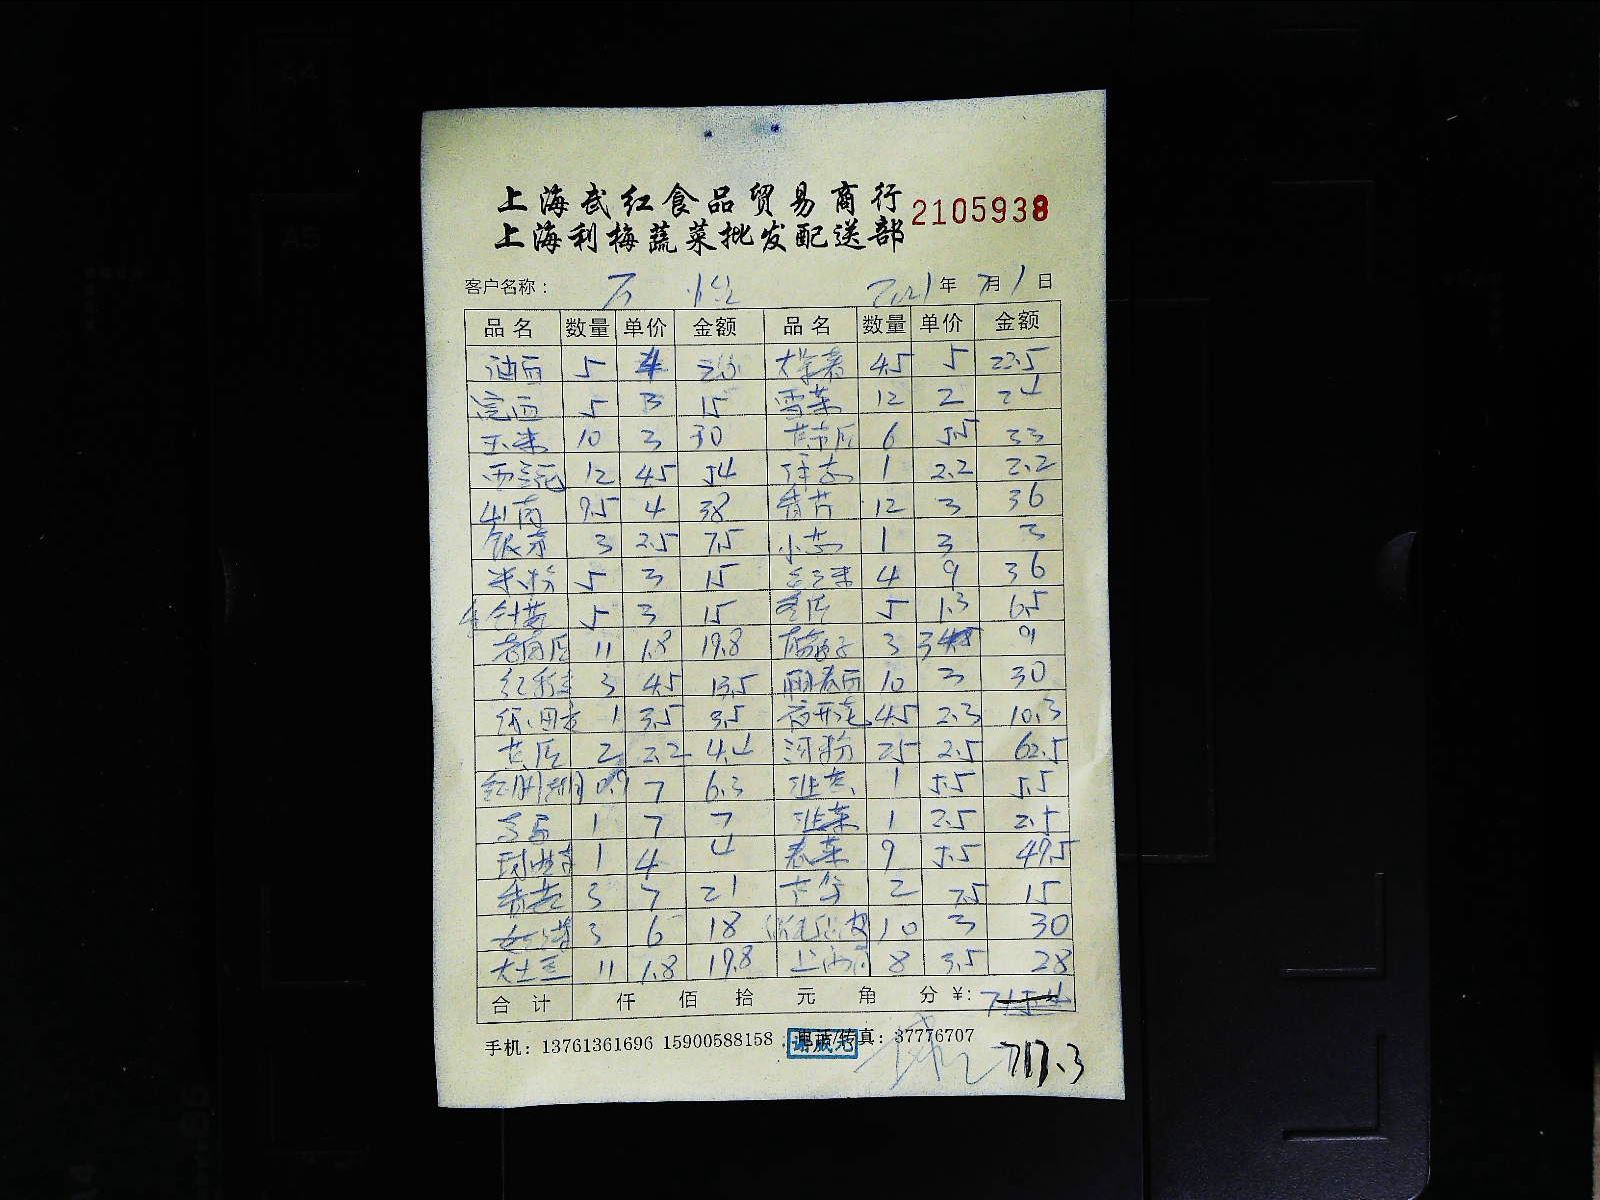 上海武红食品贸易商行
2105938
上海利梅蔬菜批发配送部
客户名称: 2021年7月1日
品名 数量 单价 金额 品名 数量 单价 金额
油面 5 4 20 4.5 5 22.5
5 3 15 雪菜 12 2 24
玉米 10 3 30 6 5.5 33
西兰花 12 4.5 54 洋葱 1 2.2 2.2
9.5 4 38 香芹 12 3 36
银芽 3 2.5 7.5 小葱 1 3 3
米粉 5 3 15 4 9 36
5 3 15 冬瓜 5 1.3 6.5
老南瓜 11 1.8 19.8 茄子 3 3 9
3 4.5 13.5 10 3 30
1 3.5 3.5 夜开花 4.5 2.3 10.3
黄瓜 2 2.2 4.4 河粉 25 2.5 62.5
0.9 7 6.3 1 5.5 5.5
1 7 7 韭菜 1 2.5 2.5
1 4 4 9 5.5 49.5
香菜 3 7 21 2 7.5 15
3 6 18 10 3 30
大土豆 11 1.8 19.8 8 3.5 28
合计 仟 佰 拾 元 角 分 ¥:
手机: 13761361696 15900588158 电话/传真: 37776707
717.3